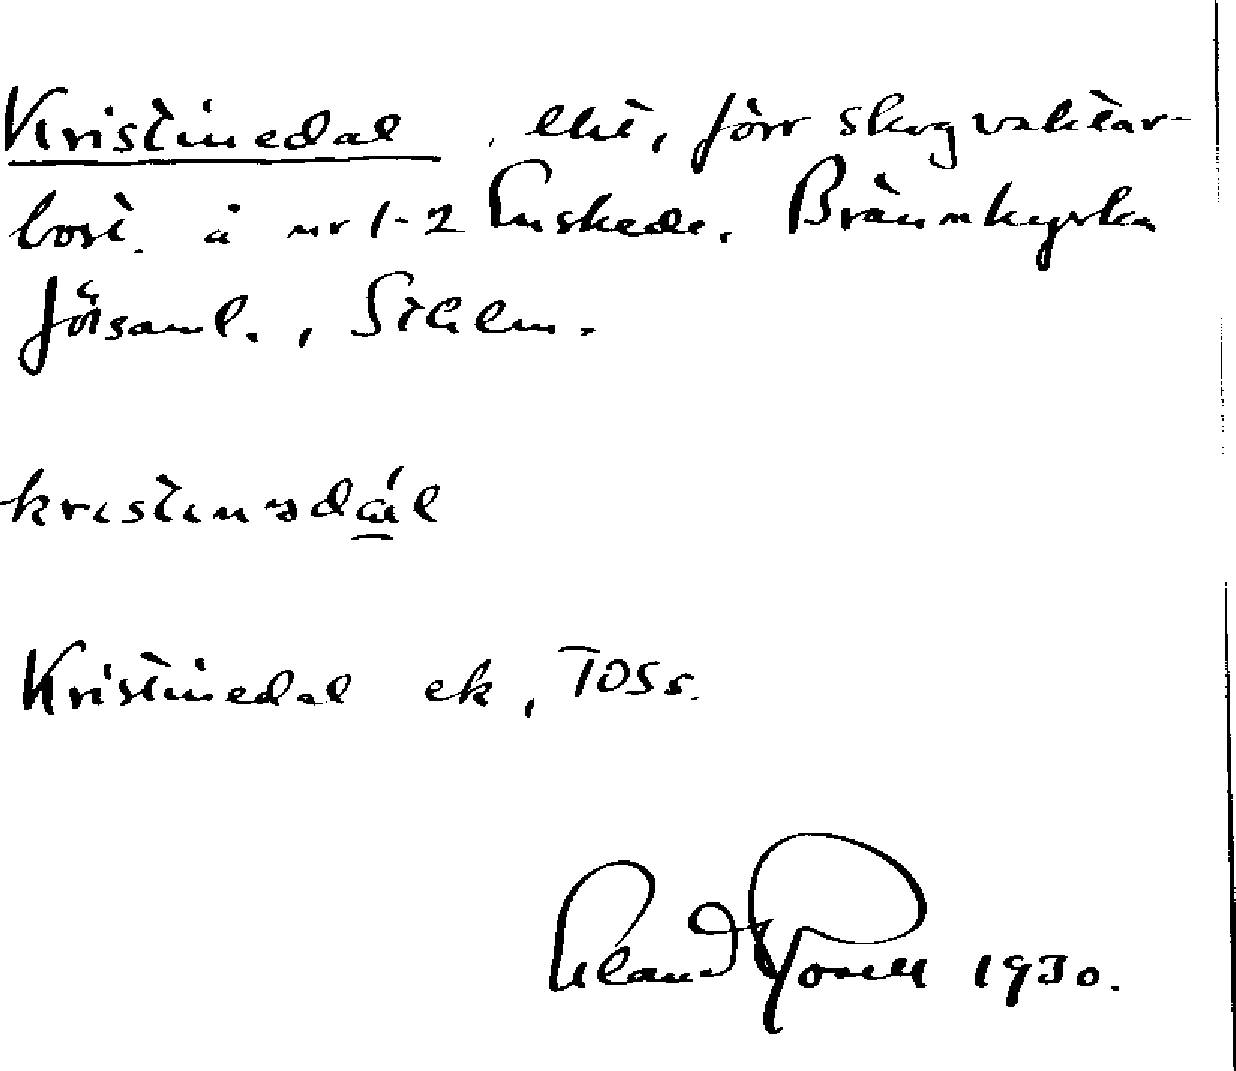 Kristinedal, lht, förr skogvaktar-
bost. å nr 1-2 Enskede. Brännkyrka
församl., Sthlm.
kristinədál
Kristinedal ek, TOSs.
Erland Rosell 1930.